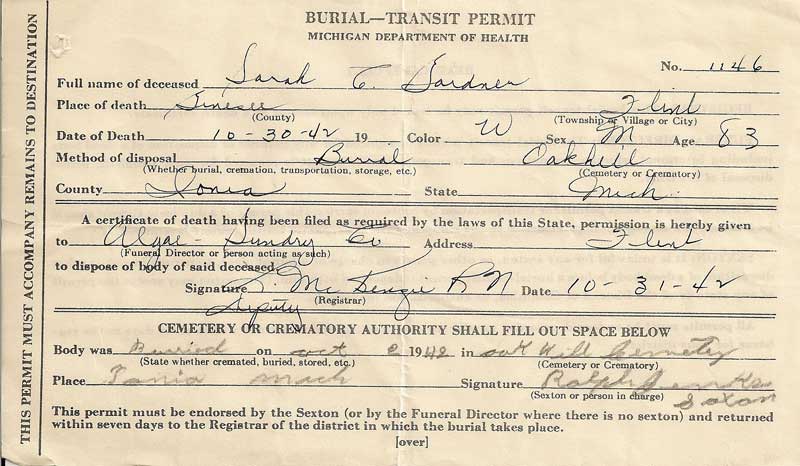 BURIAL—TRANSIT PERMIT
MICHIGAN DEPARTMENT OF HEALTH
No. 1146
Full name of deceased Sarah E. Gardner
Place of death Genesee Flint
(County) (Township or Village or City)
Date of Death 10-30-42 19 Color W Sex M Age 83
Method of disposal Burial Oakhill
(Whether burial, cremation, transportation, storage, etc.) (Cemetery or Crematory)
County Ionia State Mich.
A certificate of death having been filed as required by the laws of this State, permission is hereby given
to Algae - Gundry Co Address Flint
(Funeral Director or person acting as such)
to dispose of body of said deceased.
Signature McKenzie RN Date 10-31-42
(Registrar)
Deputy
CEMETERY OR CREMATORY AUTHORITY SHALL FILL OUT SPACE BELOW
Body was Buried on oct 2 1942 in oak Hill Cemetery
(State whether cremated, buried, stored, etc.) (Cemetery or Crematory)
Place Ionia Mich Signature Ralph Jenks
(Sexton or person in charge) Sexton
This permit must be endorsed by the Sexton (or by the Funeral Director where there is no sexton) and returned
within seven days to the Registrar of the district in which the burial takes place.
[over]
THIS PERMIT MUST ACCOMPANY REMAINS TO DESTINATION